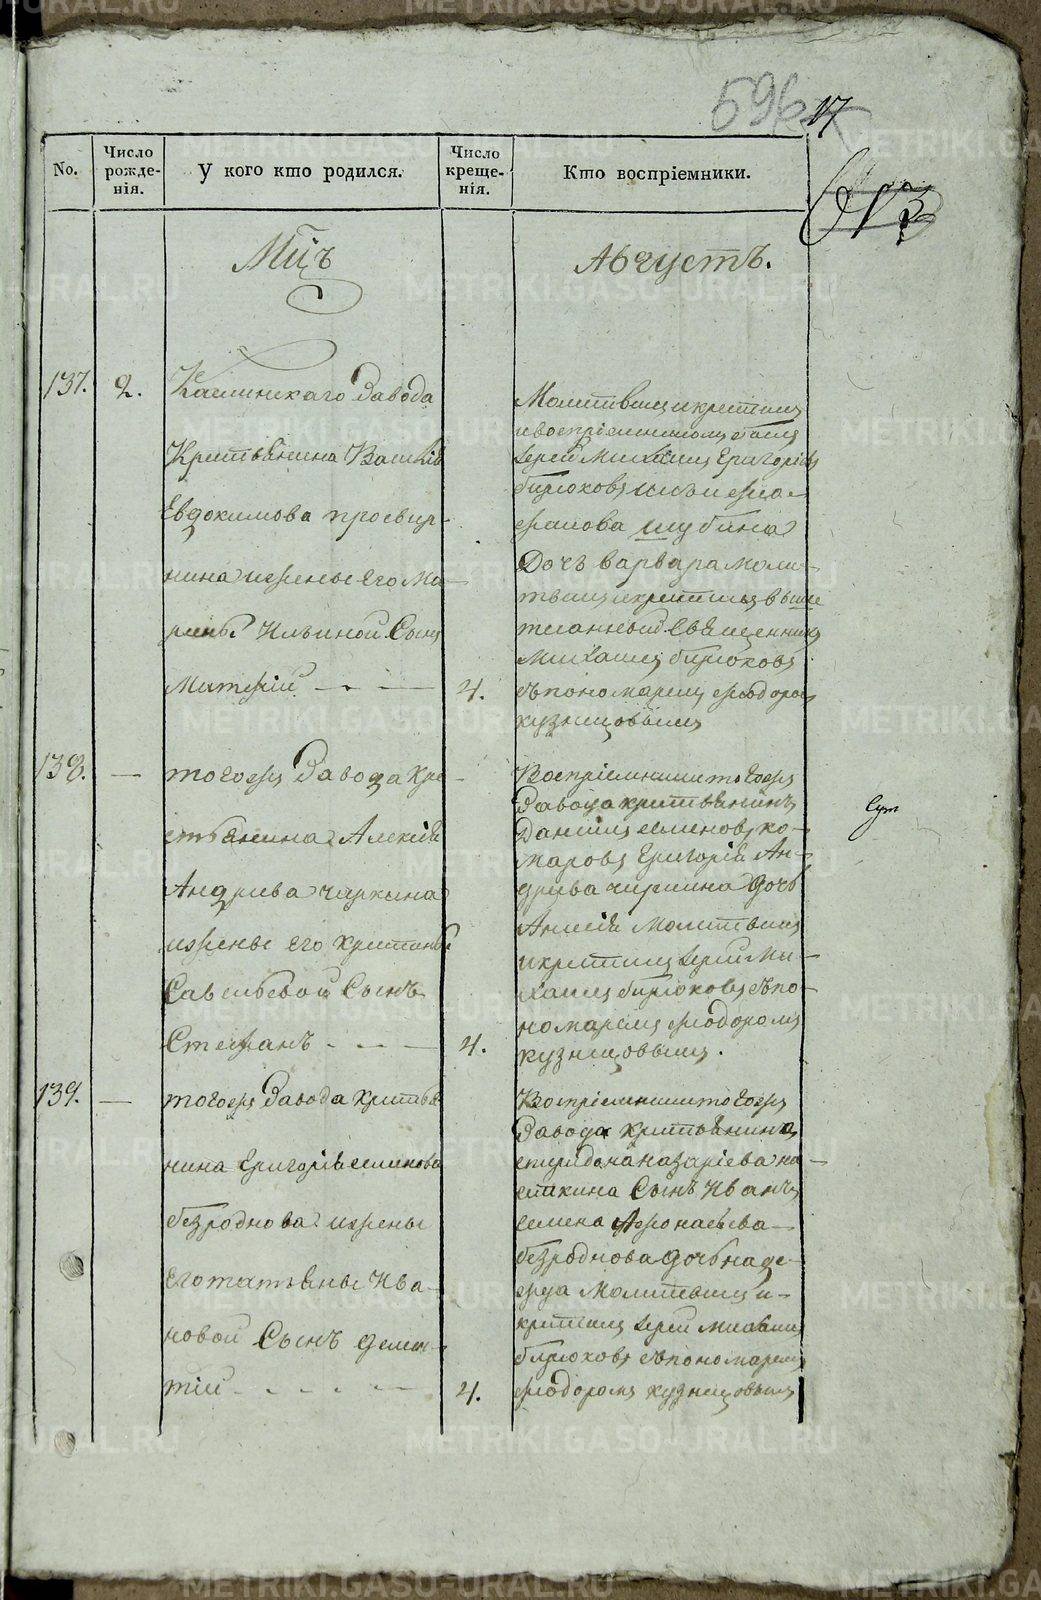 596
17
No.
Число рожде-нія.
У кого кто родился.
Число креще-нія.
Кто воспріемники.
Мцъ
Августъ.
137.
2.
Каслинскаго Завода
Крестьянина Василія
Евдокимова просвир-
нина ижены его Ма-
рины Ильиной Сынъ
Матѳій
4.
Молитвилъ и крестилъ
и воспріемникомъ былъ
Іерей Михаилъ Григоріевъ
бирюковъ
шубина
Дочь варвара моли-
твилъ и крестилъ выше
писанный Священникъ
Михаилъ бирюковъ
съ пономаремъ ѳіодоромъ
кузнецовымъ
138.
—
тогоежъ Завода Кре-
стьянина Алексія
Андреева чиркина
ижены его Христины
Савельевой Сынъ
Стефанъ
4.
Воспріемники тогоежъ
Завода крестьянинъ
Даніилъ семеновъ ко-
маровъ Григорія Ан-
дреева чиркина дочь
Анисія Молитвилъ
и крестилъ Іерей Ми-
хаилъ бирюковъ съ по-
номаремъ ѳіодоромъ
кузнецовымъ.
139.
—
тогоежъ Завода Крестья
нина Григорія семенова
безроднова ижены
его татьяны Ива-
новой Сынъ демен-
тій
4.
Воспріемники тогоежъ
Завода крестьянина
спиридона назаріева
Сынъ Иванъ
семена Аѳонасьева
безроднова дочь наде-
жда Молитвилъ и
крестилъ Іерей Михаилъ
бирюковъ съ пономаремъ
ѳіодоромъ кузнецовымъ
METRIKI.GASO-URAL.RU